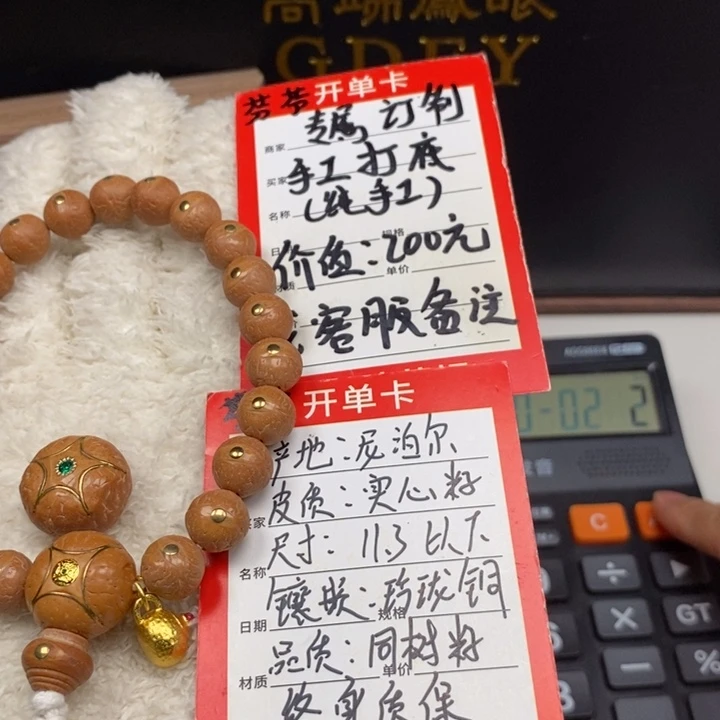 高端鳳眼
GDFY
芬芳 开单卡
商家 专属订制
买家 手工打底
名称 (纯手工)
规格
价值:200元
单价
客服备注
开单卡
产地:尼泊尔
买家 皮质:实心籽
尺寸:11.3以下
名称 镶嵌:玲珑铜
日期 规格
品质:同树籽
材质 单价
终身质保
C
÷
×
GT
−
%